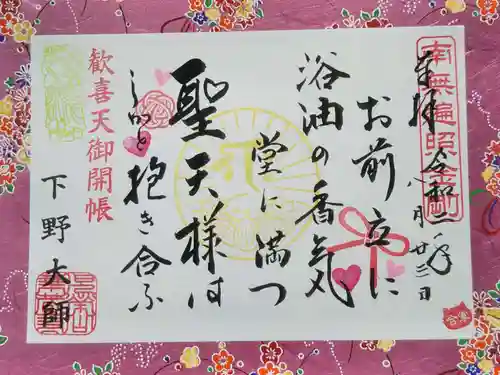 南無遍照金剛
奉拝 令和二年八月廿三日
お前立に
浴油の香気
堂に満つ
聖天様は
しかと抱き合ふ
歓喜天御開帳
下野大師